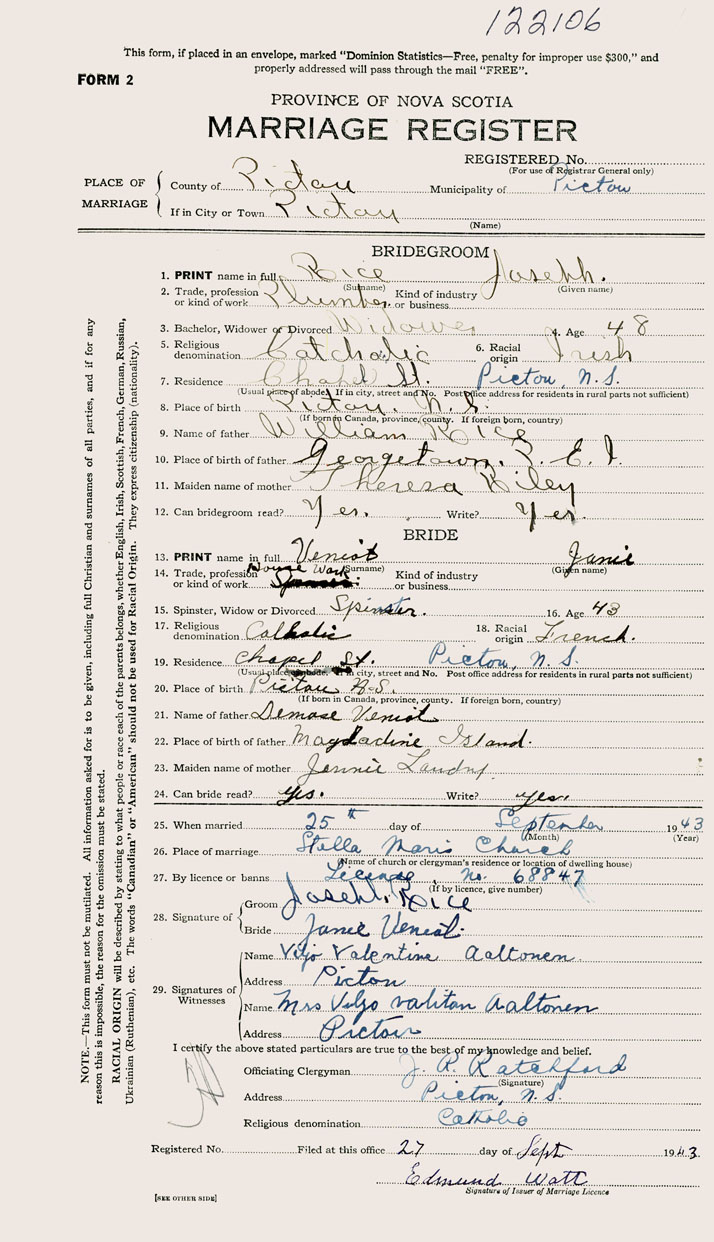 122106
This form, if placed in an envelope, marked "Dominion Statistics—Free, penalty for improper use $300," and
properly addressed will pass through the mail "FREE".
FORM 2
PROVINCE OF NOVA SCOTIA
MARRIAGE REGISTER
REGISTERED No.
(For use of Registrar General only)
PLACE OF MARRIAGE
County of Pictou Municipality of Pictou
If in City or Town Pictou
(Name)
BRIDEGROOM
1. PRINT name in full Rice Joseph.
(Surname) (Given name)
2. Trade, profession or kind of work Plumber. Kind of industry or business
3. Bachelor, Widower or Divorced Widower 4. Age 48
5. Religious denomination Catcholic 6. Racial origin Irish
7. Residence Chapel St. Pictou, N.S.
(Usual place of abode. If in city, street and No. Post office address for residents in rural parts not sufficient)
8. Place of birth Pictou. N.S.
(If born in Canada, province, county. If foreign born, country)
9. Name of father William Rice
10. Place of birth of father Georgetown, P. E. I.
11. Maiden name of mother Theresa Riley
12. Can bridegroom read? Yes. Write? Yes
BRIDE
13. PRINT name in full Veniot Janie
(Surname) (Given name)
14. Trade, profession or kind of work House Work Kind of industry or business
15. Spinster, Widow or Divorced Spinster. 16. Age 43
17. Religious denomination Catholic 18. Racial origin French.
19. Residence Chapel St. Pictou, N. S.
(Usual place of abode. If in city, street and No. Post office address for residents in rural parts not sufficient)
20. Place of birth Pictou N.S.
(If born in Canada, province, county. If foreign born, country)
21. Name of father Demase Veniot
22. Place of birth of father Magdadine Island.
23. Maiden name of mother Jennie Landry.
24. Can bride read? Yes. Write? yes.
25. When married 25th day of September 1943
(Month) (Year)
26. Place of marriage Stella Maris Church
(Name of church or clergyman's residence or location of dwelling house)
27. By licence or banns License No. 68847
(If by licence, give number)
28. Signature of
Groom Joseph. Rice
Bride Janie Veniot.
29. Signatures of Witnesses
Name Viljo Valentine Aaltonen
Address Pictou
Name Mrs Viljo Valitan Aaltonen
Address Pictou
I certify the above stated particulars are true to the best of my knowledge and belief.
Officiating Clergyman J. R. Ratchford
(Signature)
Address Pictou, N.S.
Religious denomination Catholic
Registered No. Filed at this office 27 day of Sept 1943.
Edmund Watt
Signature of Issuer of Marriage Licence
[SEE OTHER SIDE]
NOTE.—This form must not be mutilated. All information asked for is to be given, including full Christian and surnames of all parties, and if for any
reason this is impossible, the reason for the omission must be stated.
RACIAL ORIGIN will be described by stating to what people or race each of the parents belongs, whether English, Irish, Scottish, French, German, Russian,
Ukrainian (Ruthenian), etc. The words "Canadian" or "American" should not be used for Racial Origin. They express citizenship (nationality).